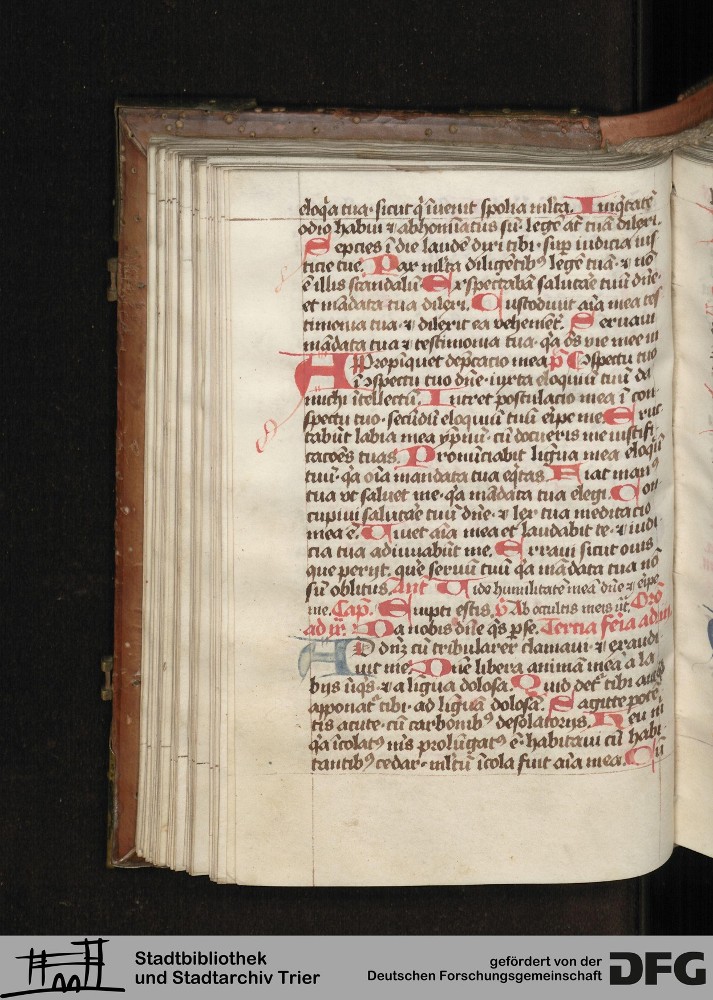 eloq̄a tua · sicut q̄ īuenit spolia ml̄ta. Iniq̄tatē
odio habui ⁊ abhoīatus sū · legē aūt tuā dilexi.
Septies ī die laudē dixi tibi · sup̄ iudicia ius
ticie tue. Pax ml̄ta diligētibꝰ legē tuā · ⁊ nō
ē illis scandalū Exspectabā salutare tuū dn̄e ·
et mādata tua dilexi. Custodiuit aīa mea tes
timonia tua · ⁊ dilexit ea vehemēt̄. Seruaui
mādata tua ⁊ testimonia tua · q̄a oēs vie mee in
Appropīquet dep̄catio mea p̄s Cōspectu tuo
ī ɔspectu tuo dn̄e · iuxta eloquiū tuū da
michi ītellectū. Intret postulacio mea ī con
spectu tuo · secūdū eloquiū tuū eripe me. Eruc
tabūt labia mea ympnū · cū docueris me iustifi
cacōes tuas. Pronūciabit ligwa mea eloq̄ū
tuū · q̄a oīa mandata tua eq̄tas. Fiat manꝰ
tua vt saluet me · q̄a mādata tua elegi. Con
cupiui salutare tuū dn̄e · ⁊ lex tua meditacio
mea ē. Viuet aīa mea et laudabit te · ⁊ iudi
cia tua adiuuabūt me. Erraui sicut ouis
que perijt · quere seruū tuū q̄a mādata tua nō
sū oblitus. Ant̄ Vide humilitatē meā dn̄e ⁊ eripe
me. Cap. Empti estis. V̄ Ab occultis meis ut̄. Orō
ad ijͣ. Da nobis dn̄e q̄s p̄se. Tercia feria ad
Ad dn̄ꝫ cū tribularer clamaui · ⁊ exaudi
uit me. Dn̄e libera animā meā a la
bijs iniq̄s · ⁊ a ligua dolosa. Quid det̄ tibi aut qͥd
apponat̄ tibi · ad liguā dolosā. Sagitte potē
tis acute · cū carbonibꝰ desolatorijs. Heu m
q̄a īcolatꝰ mꝰ prolūgatꝰ ē · habitaui cū habi
tantibꝰ cedar · ml̄tū īcola fuit aīa mea. Cū
Stadtbibliothek
und Stadtarchiv Trier
gefördert von der
Deutschen Forschungsgemeinschaft
DFG